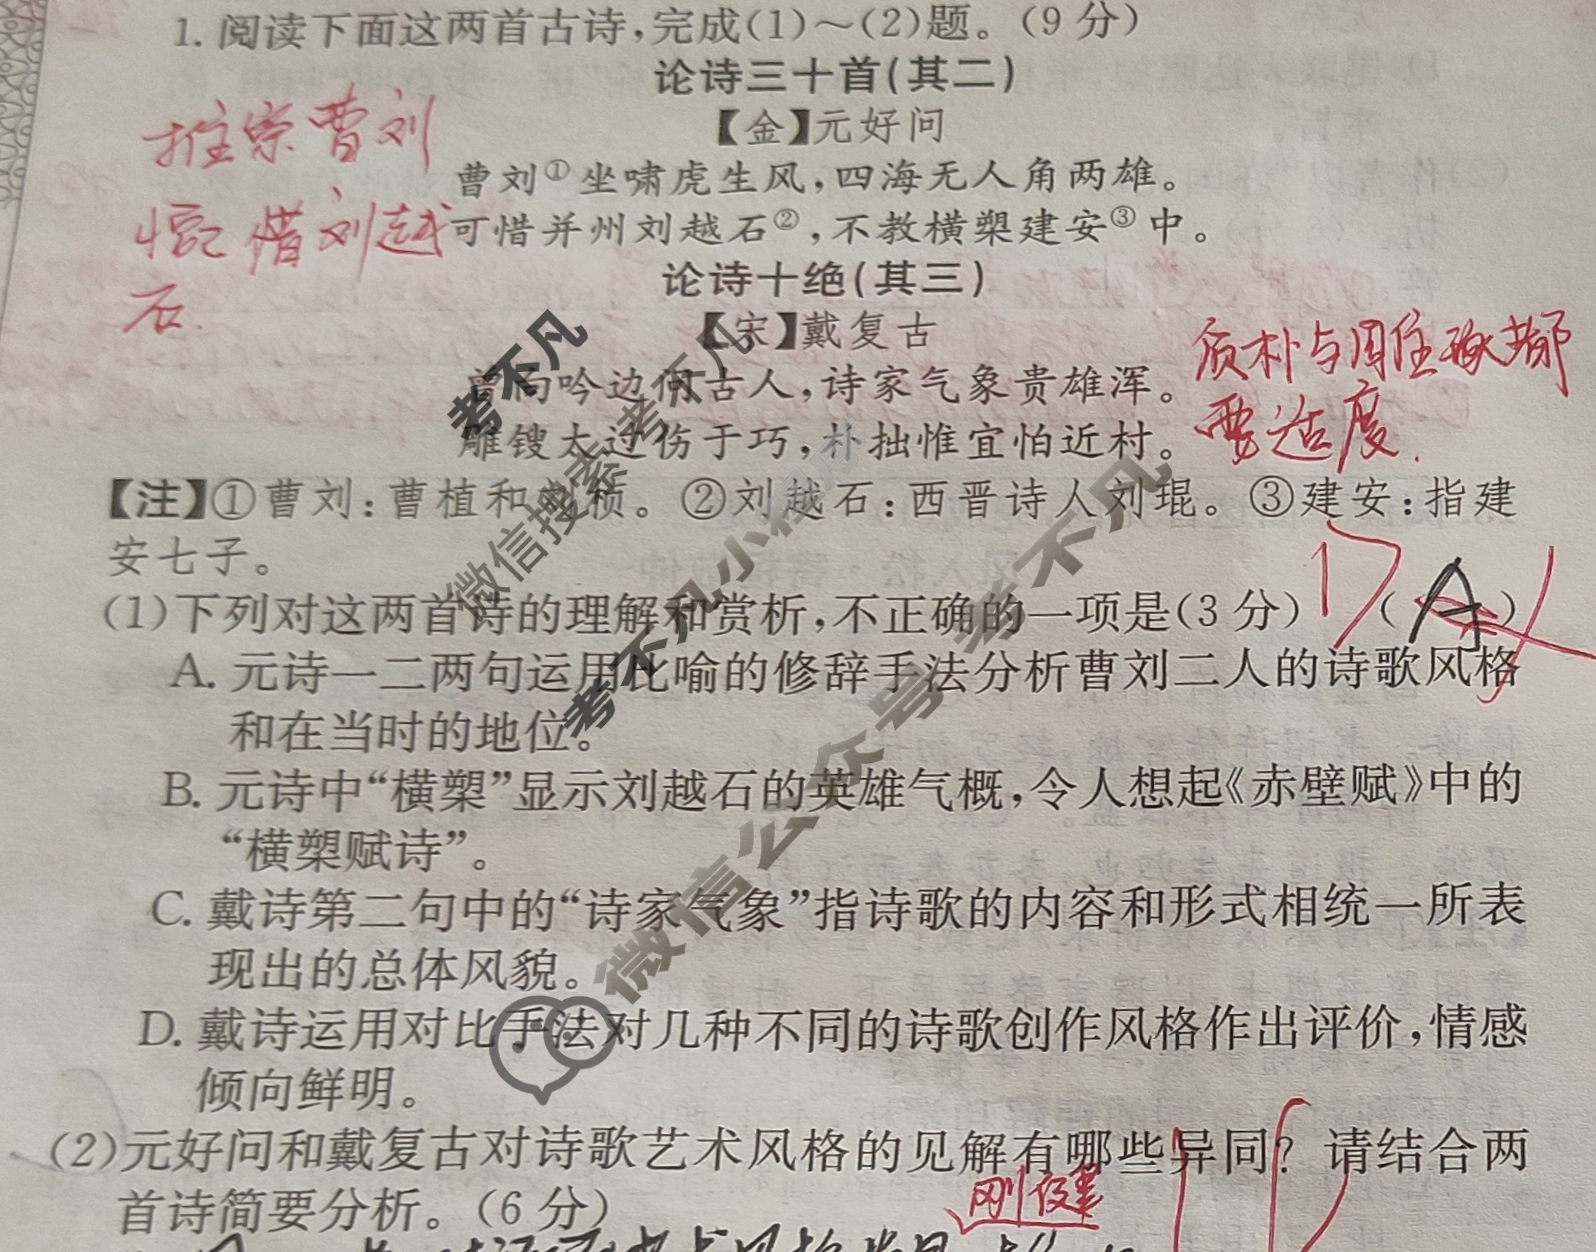 1. 阅读下面这两首古诗,完成(1)～(2)题。(9 分)
论诗三十首(其二)
【金】元好问
推崇曹刘
曹刘①坐啸虎生风,四海无人角两雄。
惋惜刘越石.
可惜并州刘越石②,不教横槊建安③中。
论诗十绝(其三)
【宋】戴复古
曾向吟边问古人,诗家气象贵雄浑。
雕锼太过伤于巧,朴拙惟宜怕近村。
质朴与雕琢都
要适度.
【注】①曹刘:曹植和刘桢。②刘越石:西晋诗人刘琨。③建安:指建
安七子。
(1)下列对这两首诗的理解和赏析,不正确的一项是(3 分) ( A )
A. 元诗一二两句运用比喻的修辞手法分析曹刘二人的诗歌风格
和在当时的地位。
B. 元诗中“横槊”显示刘越石的英雄气概,令人想起《赤壁赋》中的
“横槊赋诗”。
C. 戴诗第二句中的“诗家气象”指诗歌的内容和形式相统一所表
现出的总体风貌。
D. 戴诗运用对比手法对几种不同的诗歌创作风格作出评价,情感
倾向鲜明。
(2)元好问和戴复古对诗歌艺术风格的见解有哪些异同? 请结合两
首诗简要分析。(6 分)
刚健
考不凡
考不凡
微信搜索
考不凡小程序
微信公众号 考不凡